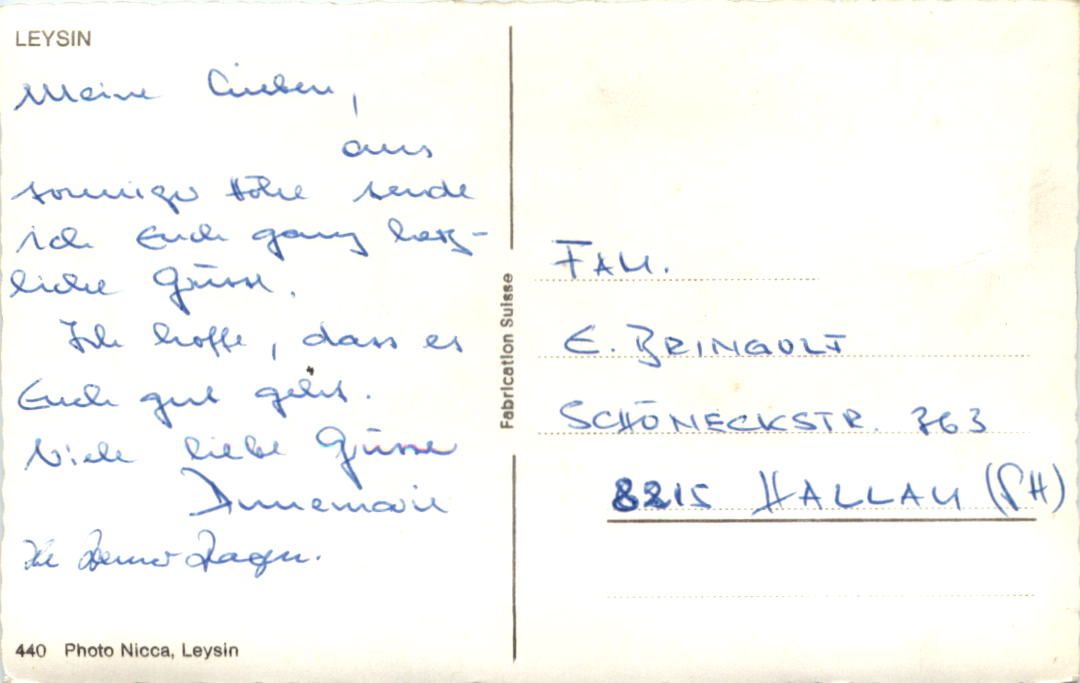 LEYSIN
Meine Lieben,
aus
sonniger Höhe sende
ich Euch ganz herz-
liche Grüsse.
Ich hoffe, dass es
Euch gut geht.
Viele liebe Grüsse
Annemarie
440 Photo Nicca, Leysin
Fabrication Suisse
FAM.
E. BRINGOLT
SCHÖNECKSTR. 763
8215 HALLAU (SH)